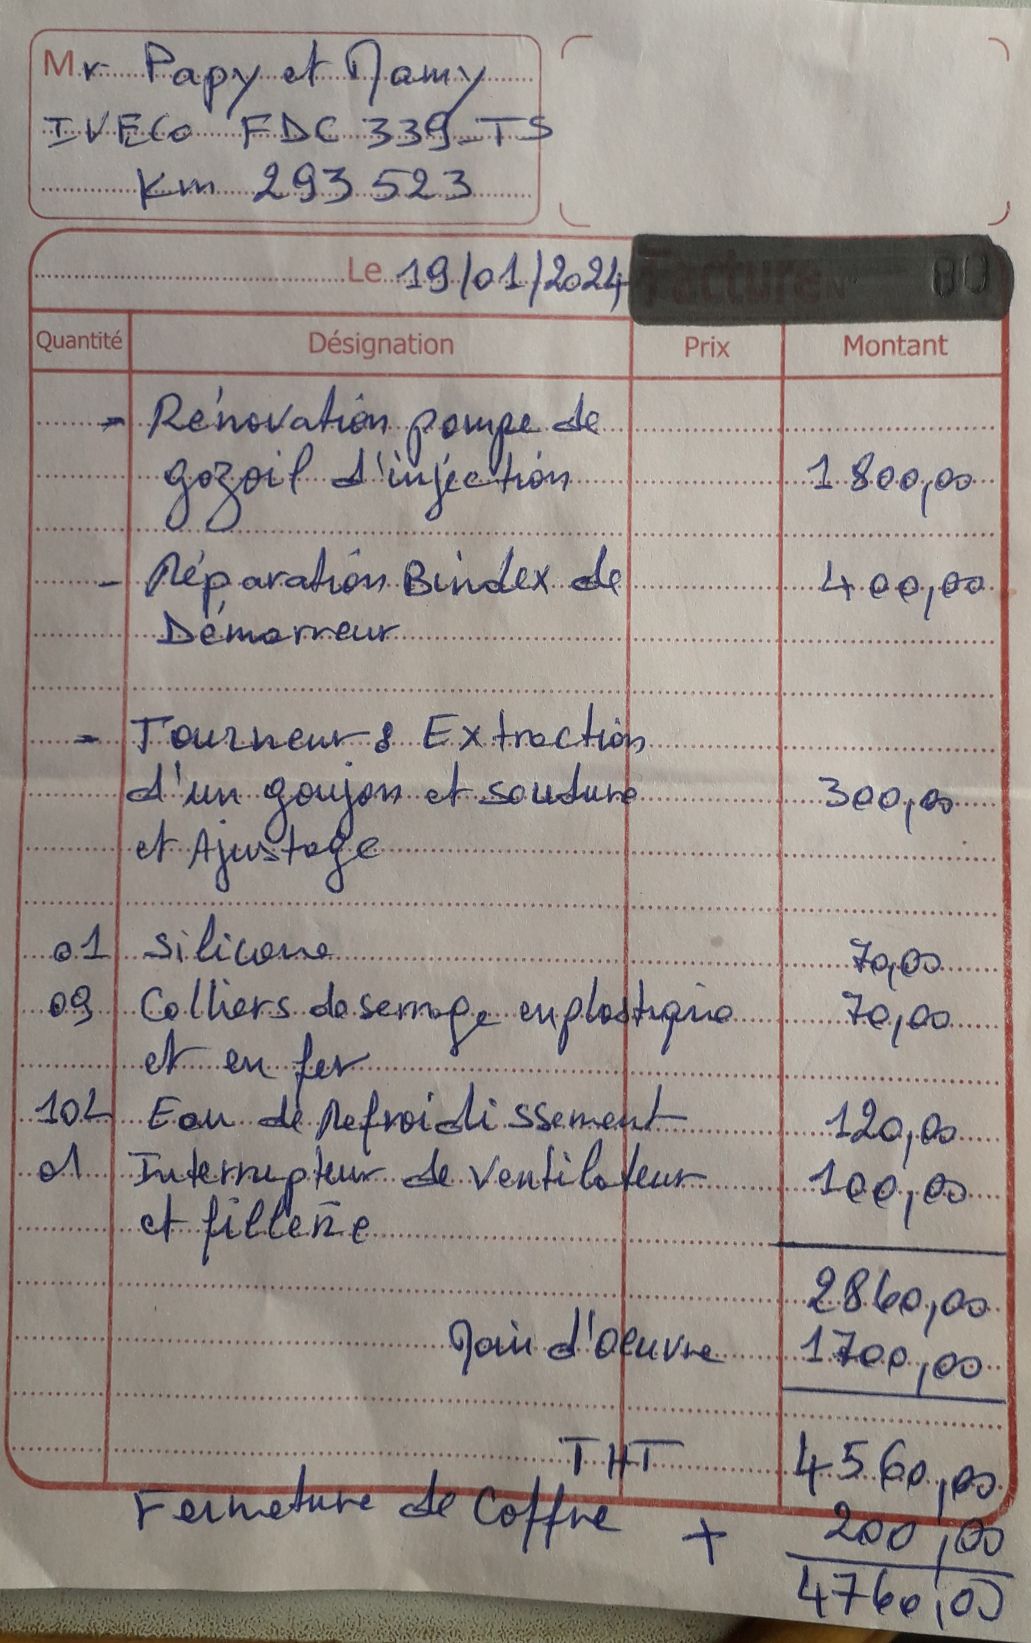 Mr Papy et Mamy
IVECO FDC 339-TS
Km 293 523
Le 19/01/2024 Facture N° 80
Quantité Désignation Prix Montant
- Rénovation pompe de
gozoil d'injection 1800,00
- Réparation Bindex de 400,00
Démarreur
- Tourneur & Extraction
d'un goujon et soudure 300,00
et Ajustage
01 Silicone 70,00
09 Colliers de serrage en plastique 70,00
et en fer
10L Eau de Refroidissement 120,00
01 Interrupteur de ventilateur 100,00
et fillerie
2860,00
Main d'oeuvre 1700,00
THT 4560,00
Fermeture de Coffre + 200,00
4760,00